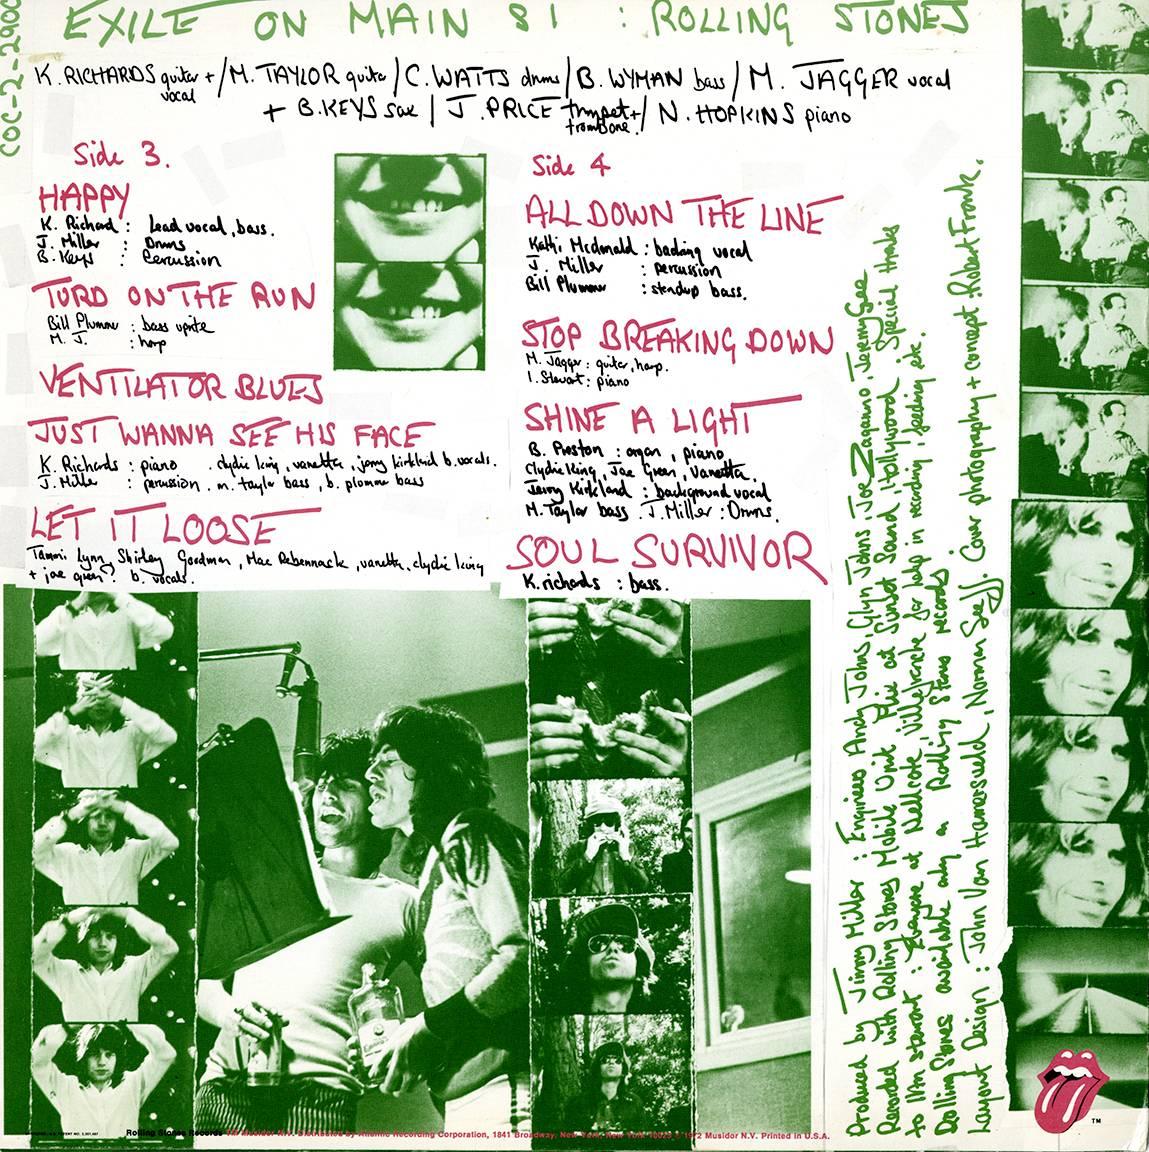 EXILE ON MAIN ST : ROLLING STONES
COC-2-2900
K. RICHARDS guitar + vocal / M. TAYLOR guitar / C. WATTS drums / B. WYMAN bass / M. JAGGER vocal
+ B. KEYS sax / J. PRICE trumpet + trombone. / N. HOPKINS piano
Side 3.
HAPPY
K. Richard : Lead vocal, bass.
J. Miller : Drums
B. Keys : Percussion
TURD ON THE RUN
Bill Plummer : bass uprite
M. J. : harp
VENTILATOR BLUES
JUST WANNA SEE HIS FACE
K. Richards : piano . clydie king, vanetta, jerry kirkland b. vocals.
J. Miller : percussion . m. taylor bass, b. plummer bass
LET IT LOOSE
Tammi Lynn, Shirley Goodman, Mac Rebennack, vanetta, clydie king
+ joe green : b. vocals.
Side 4
ALL DOWN THE LINE
Kathi Mcdonald : backing vocal
J. Miller : percussion
Bill Plummer : standup bass.
STOP BREAKING DOWN
M. Jagger : guitar, harp.
I. Stewart : piano
SHINE A LIGHT
B. Preston : organ, piano
Clydie King, Joe Green, Vanetta.
Jerry Kirkland : background vocal
M. Taylor bass . J. Miller : Drums.
SOUL SURVIVOR
K. richards : bass.
Produced by Jimmy Miller : Engineers Andy Johns, Glyn Johns, Joe Zagarino, Jeremy Gee
Recorded with Rolling Stones Mobile Unit Plus at Sunset Sound, Hollywood Special thanks
to Ian stewart : at Nellcote Villefranche for help in recording, feeding etc.
Rolling Stones available only on Rolling Stones records
Layout Design : John Van Hamersveld, Norman Seeff. Cover photography + concept : Robert Frank.
Rolling Stones Records Distributed by Atlantic Recording Corporation, 1841 Broadway, New York, New York 10023 © 1972 Musidor N.V. Printed in U.S.A.
TM